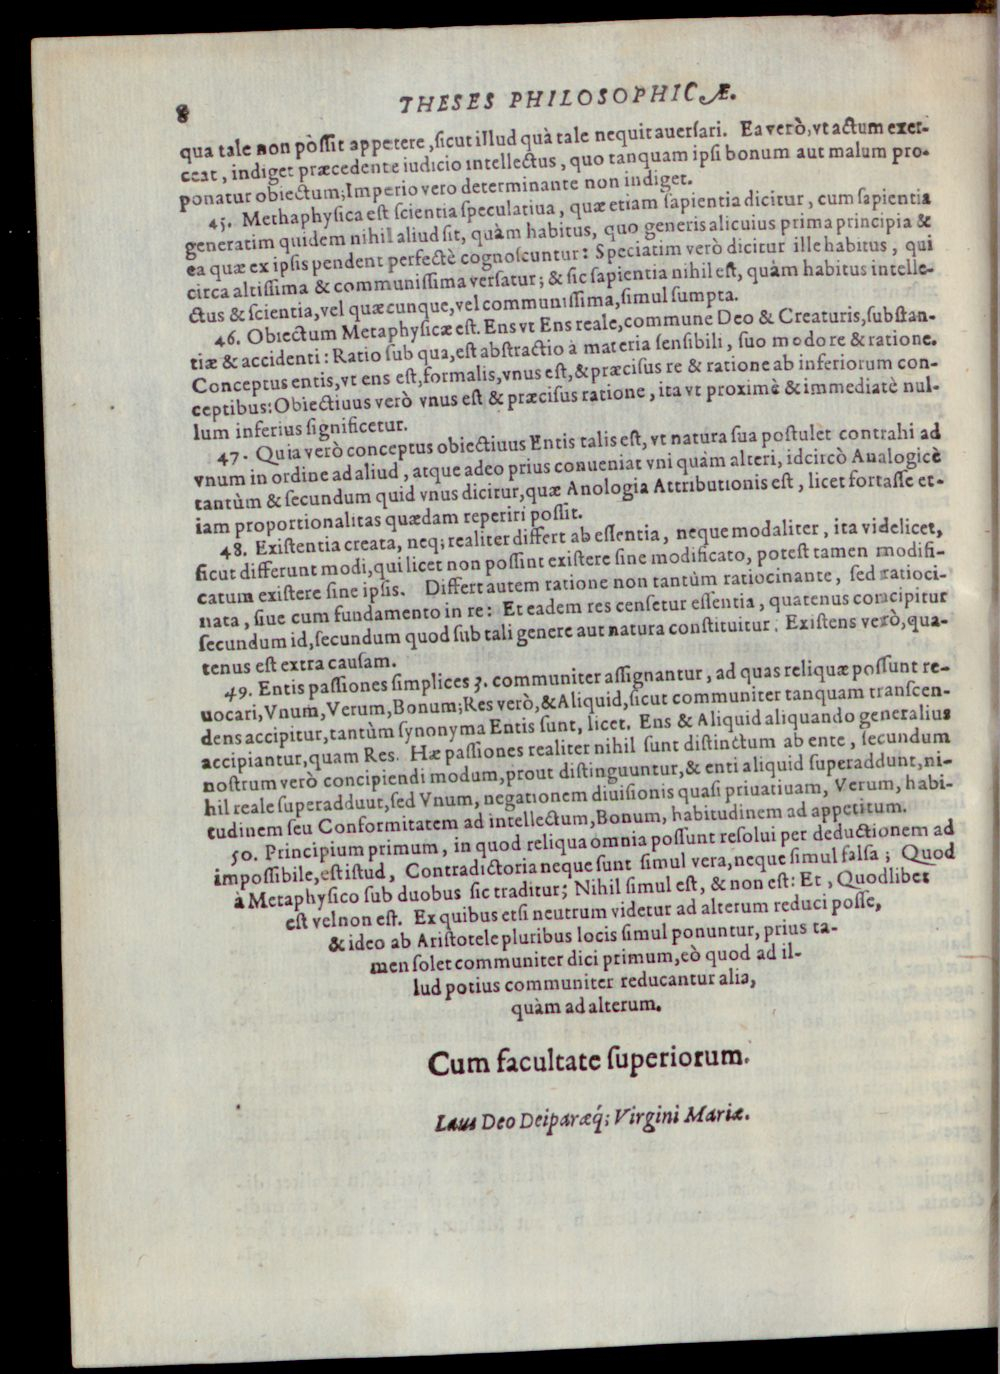 8 THESES PHILOSOPHICÆ.
qua tale non pòſſit appetere, ſicut illud quà tale nequit auerſari. Ea verò, vt actum exer-
ceat, indiget præcedente iudicio intellectus, quo tanquam ipſi bonum aut malum pro-
ponatur obiectum; Imperio vero determinante non indiget.
45. Methaphyſica eſt ſcientia ſpeculatiua, quæ etiam ſapientia dicitur, cum ſapientia
generatim quidem nihil aliud ſit, quàm habitus, quo generis alicuius prima principia &
ea quæ ex ipſis pendent perfectè cognoſcuntur: Speciatim verò dicitur ille habitus, qui
circa altiſſima & communiſſima verſatur; & ſic ſapientia nihil eſt, quàm habitus intelle-
ctus & ſcientia, vel quæcunque, vel communiſſima, ſimul ſumpta.
46. Obiectum Metaphyſicæ eſt. Ens vt Ens reale, commune Deo & Creaturis, ſubſtan-
tiæ & accidenti: Ratio ſub qua, eſt abſtractio à materia ſenſibili, ſuo modo re & ratione.
Conceptus entis, vt ens eſt, formalis, vnus eſt, & præciſus re & ratione ab inferiorum con-
ceptibus: Obiectiuus verò vnus eſt & præciſus ratione, ita vt proximè & immediatè nul-
lum inferius ſignificetur.
47. Quia verò conceptus obiectiuus Entis talis eſt, vt natura ſua poſtulet contrahi ad
vnum in ordine ad aliud, atque adeo prius conueniat vni quàm alteri, idcircò Analogicè
tantùm & ſecundum quid vnus dicitur, quæ Anologia Attributionis eſt, licet fortaſſe et-
iam proportionalitas quædam reperiri poſſit.
48. Exiſtentia creata, neq; realiter differt ab eſſentia, neque modaliter, ita videlicet,
ſicut differunt modi, qui licet non poſſint exiſtere ſine modificato, poteſt tamen modifi-
catum exiſtere ſine ipſis. Differt autem ratione non tantùm ratiocinante, ſed ratioci-
nata, ſiue cum fundamento in re: Et eadem res cenſetur eſſentia, quatenus concipitur
ſecundum id, ſecundum quod ſub tali genere aut natura conſtituitur. Exiſtens verò, qua-
tenus eſt extra cauſam.
49. Entis paſſiones ſimplices 3. communiter aſſignantur, ad quas reliquæ poſſunt re-
uocari, Vnum, Verum, Bonum; Res verò, & Aliquid, ſicut communiter tanquam tranſcen-
dens accipitur, tantùm ſynonyma Entis ſunt, licet. Ens & Aliquid aliquando generalius
accipiantur, quam Res. Hæ paſſiones realiter nihil ſunt diſtinctum ab ente, ſecundum
noſtrum verò concipiendi modum, prout diſtinguuntur, & enti aliquid ſuperaddunt, ni-
hil reale ſuperadduut, ſed Vnum, negationem diuiſionis quaſi priuatiuam, Verum, habi-
tudinem ſeu Conformitatem ad intellectum, Bonum, habitudinem ad appetitum.
50. Principium primum, in quod reliqua omnia poſſunt reſolui per deductionem ad
impoſſibile, eſt iſtud, Contradictoria neque ſunt ſimul vera, neque ſimul falſa; Quod
à Metaphyſico ſub duobus ſic traditur; Nihil ſimul eſt, & non eſt: Et, Quodlibet
eſt vel non eſt. Ex quibus etſi neutrum videtur ad alterum reduci poſſe,
& ideo ab Ariſtotele pluribus locis ſimul ponuntur, prius ta-
men ſolet communiter dici primum, eò quod ad il-
lud potius communiter reducantur alia,
quàm ad alterum.
Cum facultate ſuperiorum.
Laus Deo Deiparæq́; Virgini Mariæ.